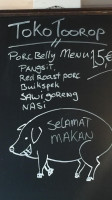 TOKO TOOROP
PORC BELLY MENU 15€
PANGSIT
RED ROAST PORC
BUIKSPEK
SAWI GORENG
NASI
SELAMAT
MAKAN